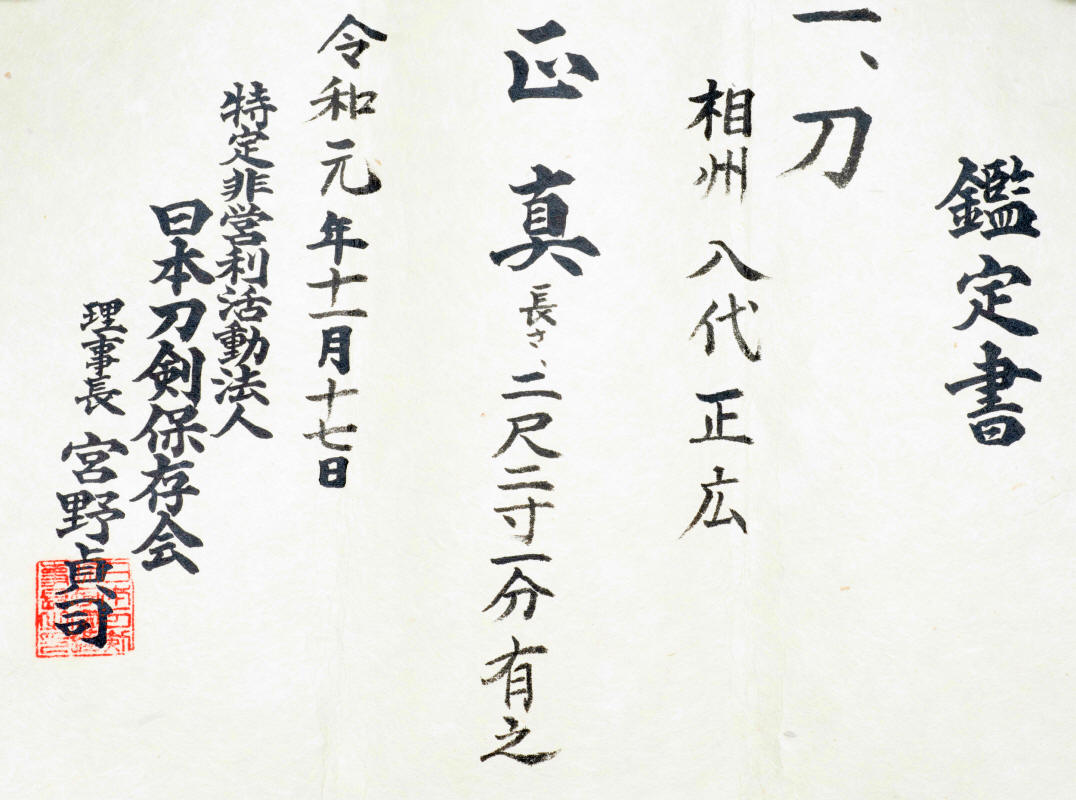 鑑定書
一、刀
相州 八代 正広
正真 長さ、二尺二寸一分有之
令和元年十一月十七日
特定非営利活動法人
日本刀剣保存会
理事長 宮野貞司